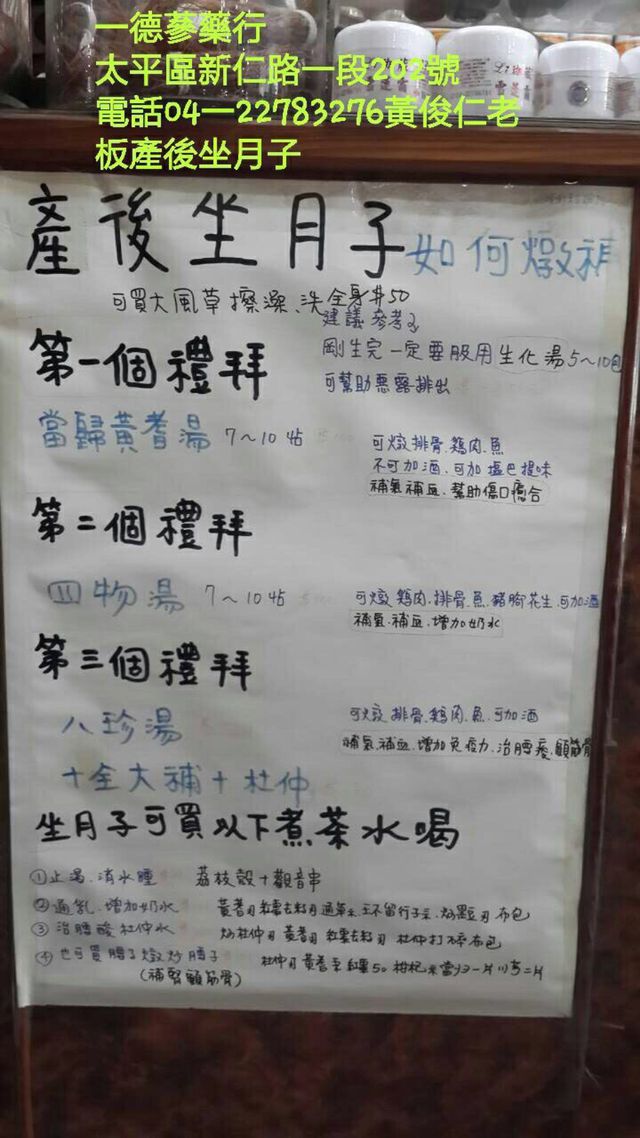 一德蔘藥行
太平區新仁路一段202號
電話04一22783276黃俊仁老
板產後坐月子
產後坐月子如何燉補
可買大風草擦澡、洗全身#50
建議參考
第一個禮拜
剛生完一定要服用生化湯5～10包
可幫助惡露排出
當歸黃耆湯 7～10帖
可燉排骨.鷄肉.魚
不可加酒.可加塩巴提味
補氣補血.幫助傷口癒合
第二個禮拜
四物湯 7～10帖
可燉鷄肉.排骨.魚.豬腳花生.可加酒
補氣.補血.增加奶水
第三個禮拜
八珍湯
可燉排骨.鷄肉.魚.可加酒
補氣.補血.增加免疫力.治腰痠.顧筋骨
十全大補+杜仲
坐月子可買以下煮茶水喝
①止渴.消水腫 荔枝殼+觀音串
②通乳.增加奶水 黃耆 紅棗去籽 通草 王不留行子 布包
③治腰酸杜仲水 炒杜仲 黃耆 紅棗去籽 杜仲打碎布包
④也可買腰子燉炒腰子 杜仲 黃耆 紅棗50 枸杞 當歸一片 川芎二片
(補腎顧筋骨)